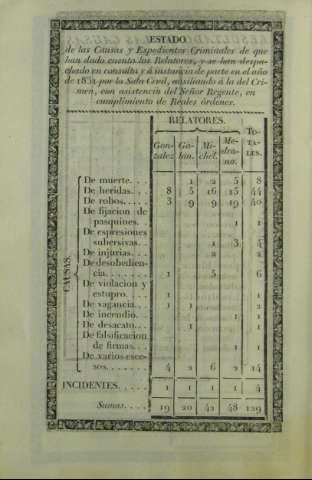 ESTADO
de las Causas y Expedientes Criminales de que
han dado cuenta los Relatores, y se han despa-
chado en consulta y á instancia de parte en el año
de por la Sala Civil, auxiliando á la del Cri-
men, con asistencia del Señor Regente, en
cumplimiento de Reales órdenes.
RELATORES.
Gon- Ga- Mi- Me- To-
zalez lan. chel. dra- TA-
no. LES.
CAUSAS.
De muerte. . . 1 2 5 8
De heridas. . . 8 5 16 15 44
De robos. . . . 3 9 9 19 40
De fijacion de
pasquines. 1 1
De espresiones
subersivas. . 1 3 4
De injurias. . . 2 2
De desobedien-
cia. . . . . 1 5 6
De violacion y
estupro. . . 1 1
De vagancia. . 1 1 2
De incendio. . 1 1
De desacato. . 1 1
De falsificacion
de firmas. . . 1 1
De varios esce-
sos. . . . . 4 2 6 2 14
INCIDENTES. . . . . 1 1 1 1 4
Sumas. . . . 19 20 42 48 129